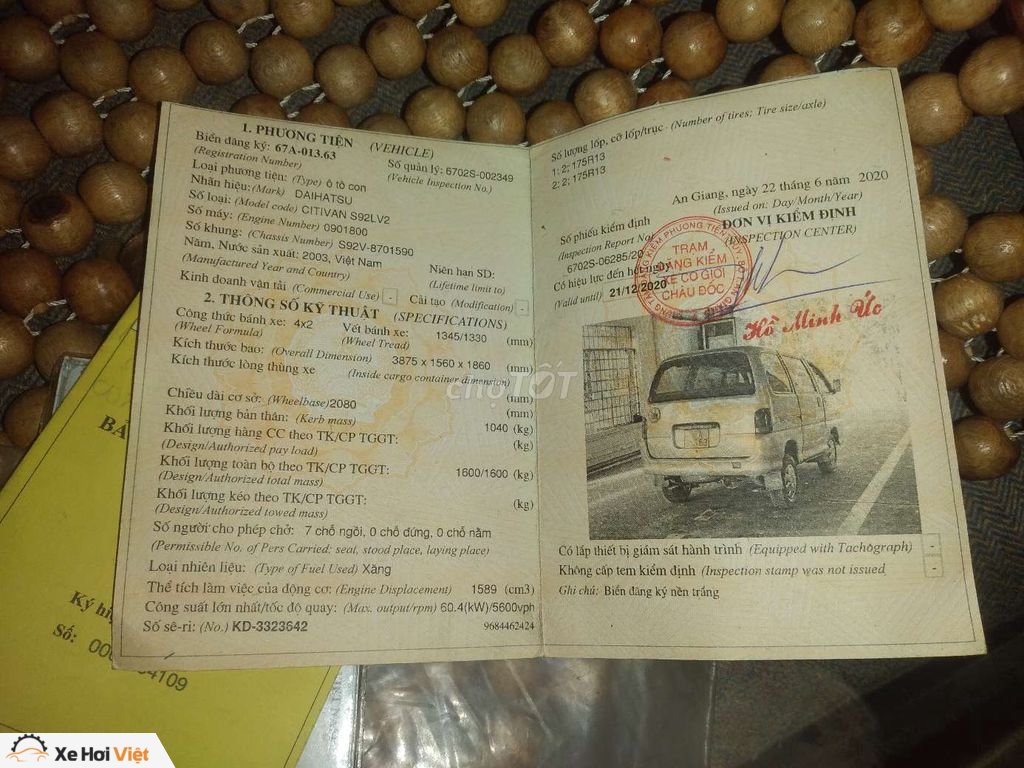 1. PHƯƠNG TIỆN (VEHICLE)
Biển đăng ký: 67A-013.63
(Registration Number)
Số quản lý: 6702S-002349
(Vehicle Inspection No.)
Loại phương tiện: (Type) ô tô con
Nhãn hiệu: (Mark) DAIHATSU
Số loại: (Model code) CITIVAN S92LV2
Số máy: (Engine Number) 0901800
Số khung: (Chassis Number) S92V-8701590
Năm, Nước sản xuất: 2003, Việt Nam
(Manufactured Year and Country)
Niên hạn SD:
(Lifetime limit to)
Kinh doanh vận tải (Commercial Use) -
Cải tạo (Modification) -
2. THÔNG SỐ KỸ THUẬT (SPECIFICATIONS)
Công thức bánh xe: 4x2
(Wheel Formula)
Vết bánh xe: 1345/1330 (mm)
(Wheel Tread)
Kích thước bao: (Overall Dimension) 3875 x 1560 x 1860 (mm)
Kích thước lòng thùng xe (Inside cargo container dimension)
(mm)
Chiều dài cơ sở: (Wheelbase) 2080 (mm)
Khối lượng bản thân: (Kerb mass) 1040 (kg)
Khối lượng hàng CC theo TK/CP TGGT: (kg)
(Design/Authorized pay load)
Khối lượng toàn bộ theo TK/CP TGGT: 1600/1600 (kg)
(Design/Authorized total mass)
Khối lượng kéo theo TK/CP TGGT: (kg)
(Design/Authorized towed mass)
Số người cho phép chở: 7 chỗ ngồi, 0 chỗ đứng, 0 chỗ nằm
(Permissible No. of Pers Carried: seat, stood place, laying place)
Loại nhiên liệu: (Type of Fuel Used) Xăng
Thể tích làm việc của động cơ: (Engine Displacement) 1589 (cm3)
Công suất lớn nhất/tốc độ quay: (Max. output/rpm) 60.4(kW)/5600vph
Số sê-ri: (No.) KD-3323642 9684462424
Số lượng lốp, cỡ lốp/trục (Number of tires; Tire size/axle)
1: 2; 175R13
2: 2; 175R13
An Giang, ngày 22 tháng 6 năm 2020
(Issued on: Day/Month/Year)
Số phiếu kiểm định
(Inspection Report No)
6702S-06285/20
ĐƠN VỊ KIỂM ĐỊNH
(INSPECTION CENTER)
Có hiệu lực đến hết ngày
(Valid until) 21/12/2020
TRẠM
ĐĂNG KIỂM
XE CƠ GIỚI
CHÂU ĐỐC
Hồ Minh Ức
Có lắp thiết bị giám sát hành trình (Equipped with Tachograph) -
Không cấp tem kiểm định (Inspection stamp was not issued -
Ghi chú: Biển đăng ký nền trắng
chợ TỐT
Ký hi
Số: 00
4109
Xe Hơi Việt